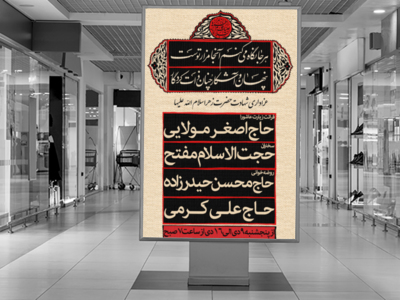 هر جا نگاه می‌کنم آنجا مزار توست
عزاداری شهادت حضرت زهرا سلام الله علیها
قرائت زیارت عاشورا
حاج اصغر مولایی
سخنران
حجت الاسلام مفتح
روضه خوانی
حاج محسن حیدرزاده
حاج علی کرمی
از پنجشنبه ۹ دی الی ۱۶ دی از ساعت ۱۰ صبح